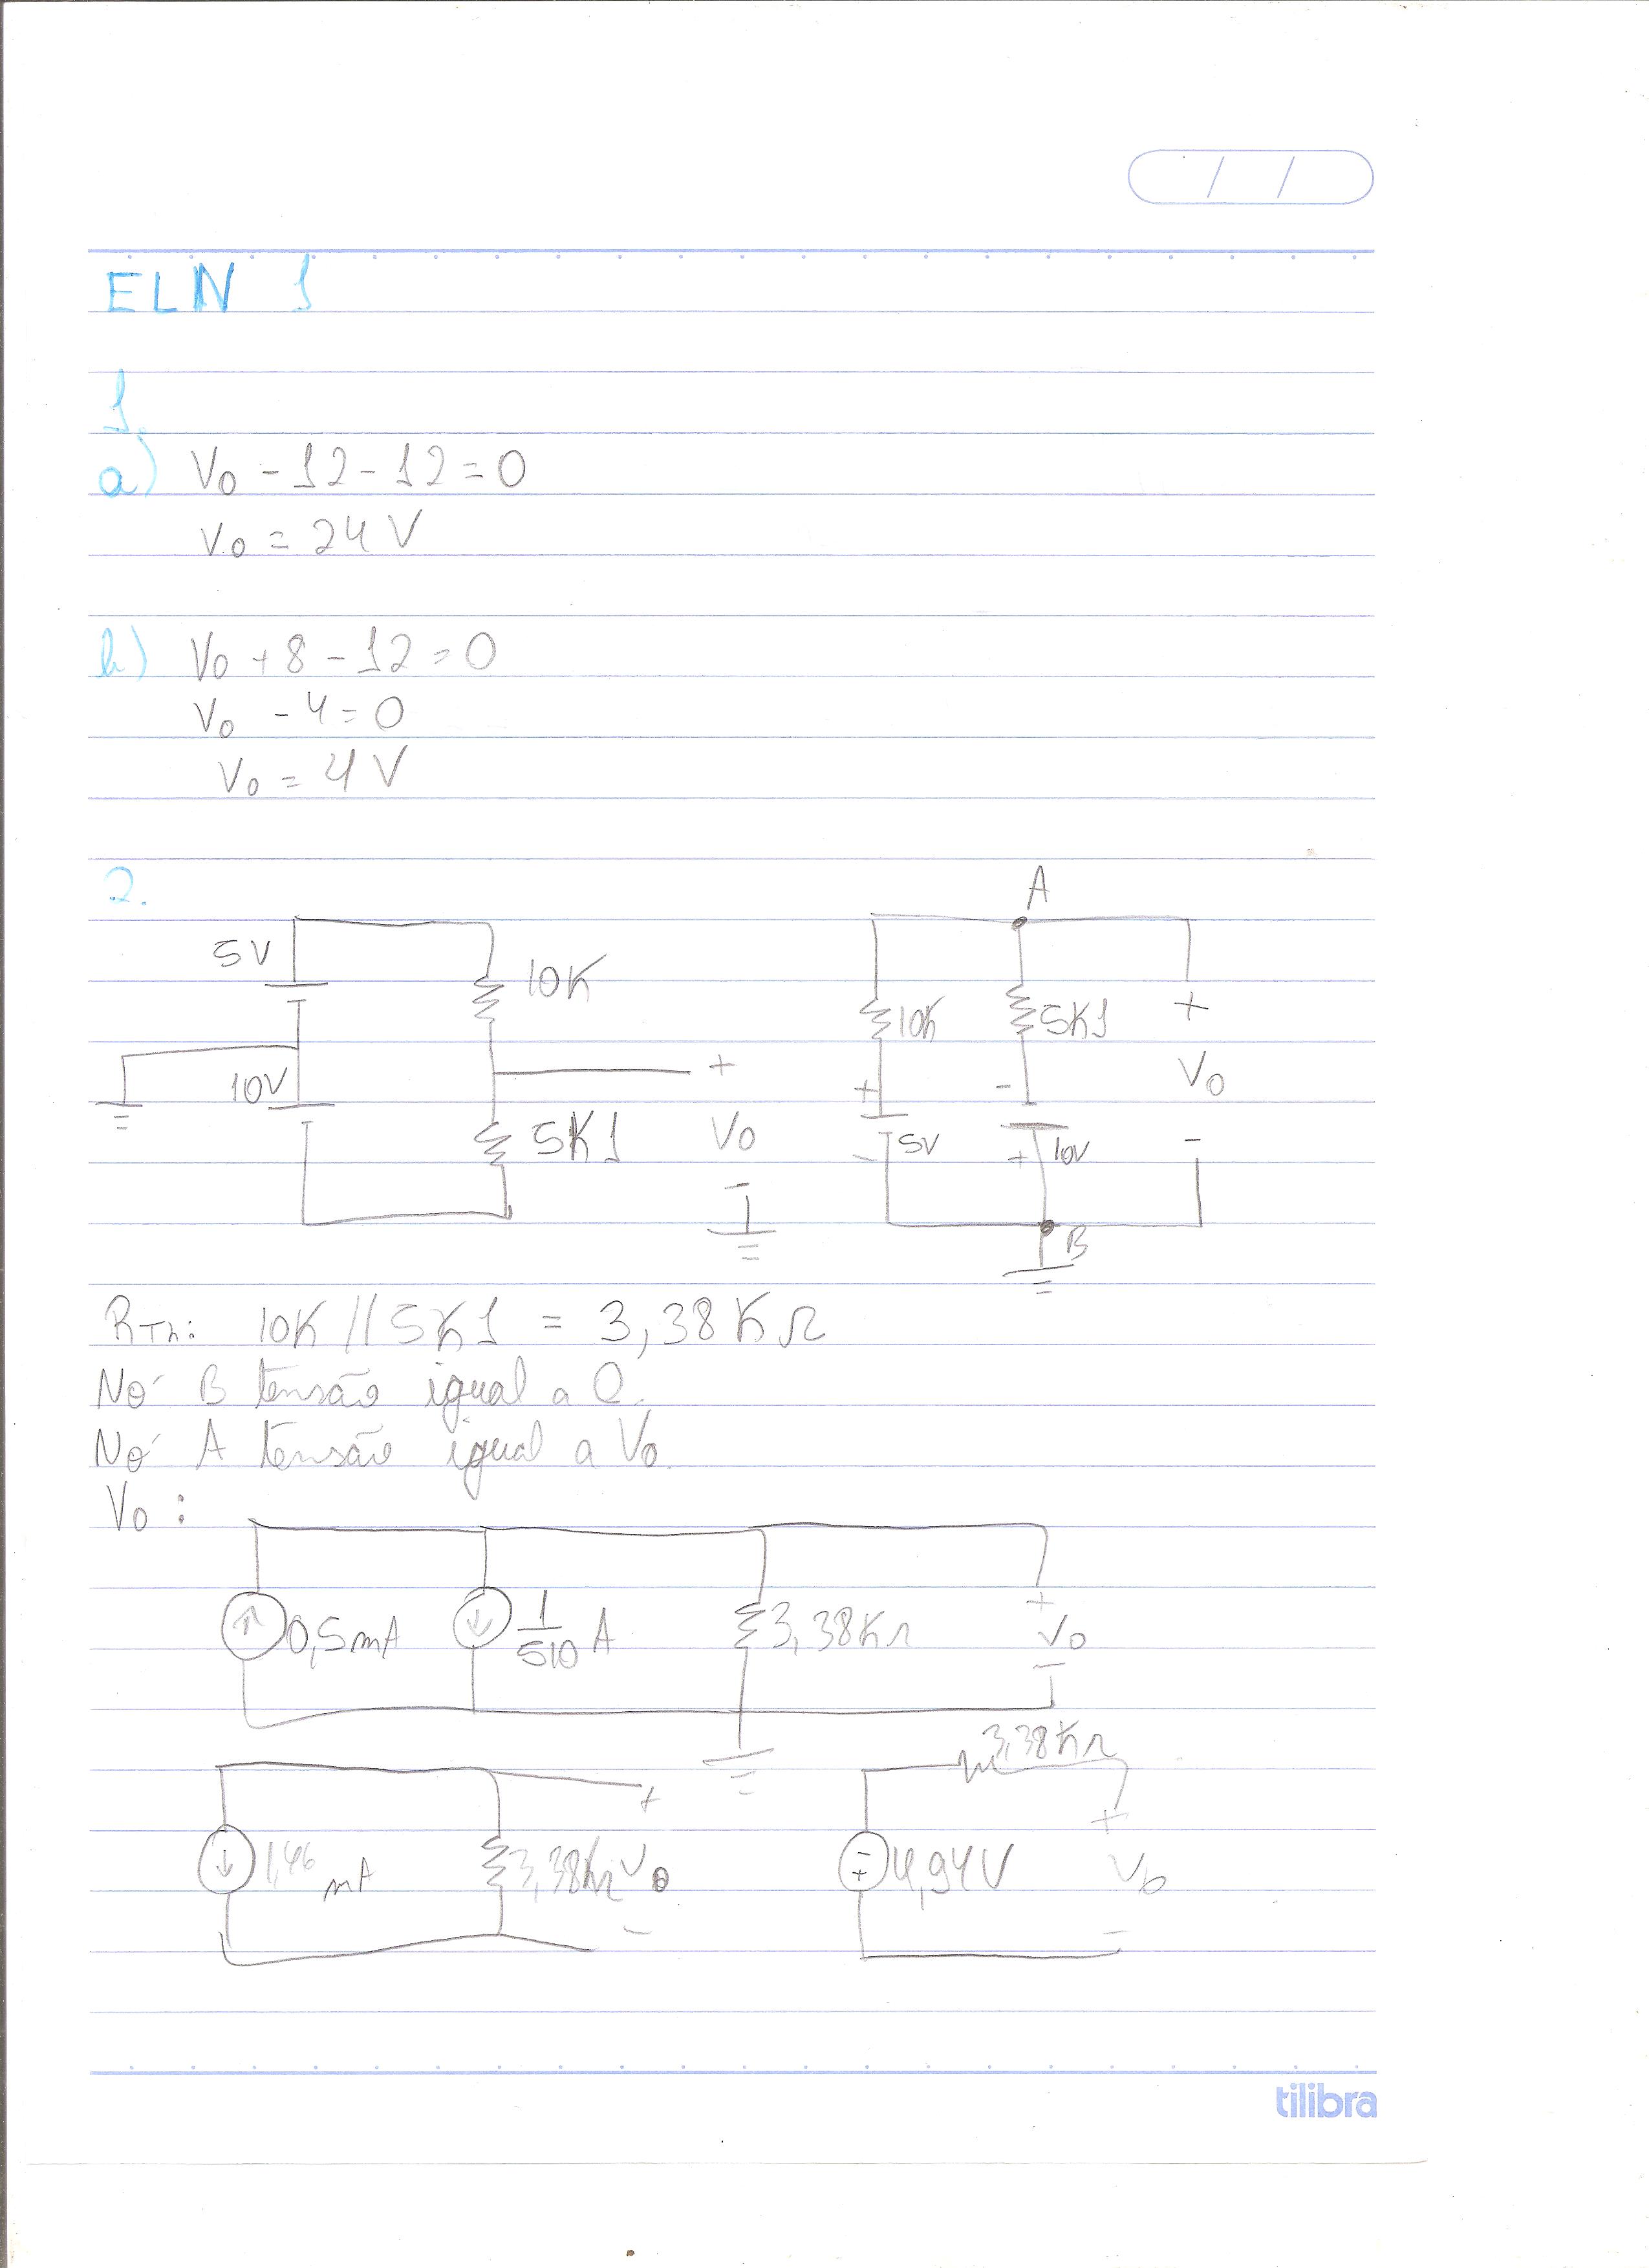 / /
ELN 1
1.
a) V0 - 12 - 12 = 0
V0 = 24 V
b) V0 + 8 - 12 = 0
V0 - 4 = 0
V0 = 4 V
2.
A
5V
10K
10K
5K1
+
+
10V
+
-
V0
5K1
V0
-
5V
+
10V
-
-
B
RTh: 10K // 5K1 = 3,38 KΩ
Nó B tensão igual a 0.
Nó A tensão igual a V0.
V0 :
0,5mA
1/510 A
3,38KΩ
+
V0
-
3,38KΩ
+
+
1,46 mA
3,38KΩ
V0
-
+
4,94V
V0
-
-
tilibra